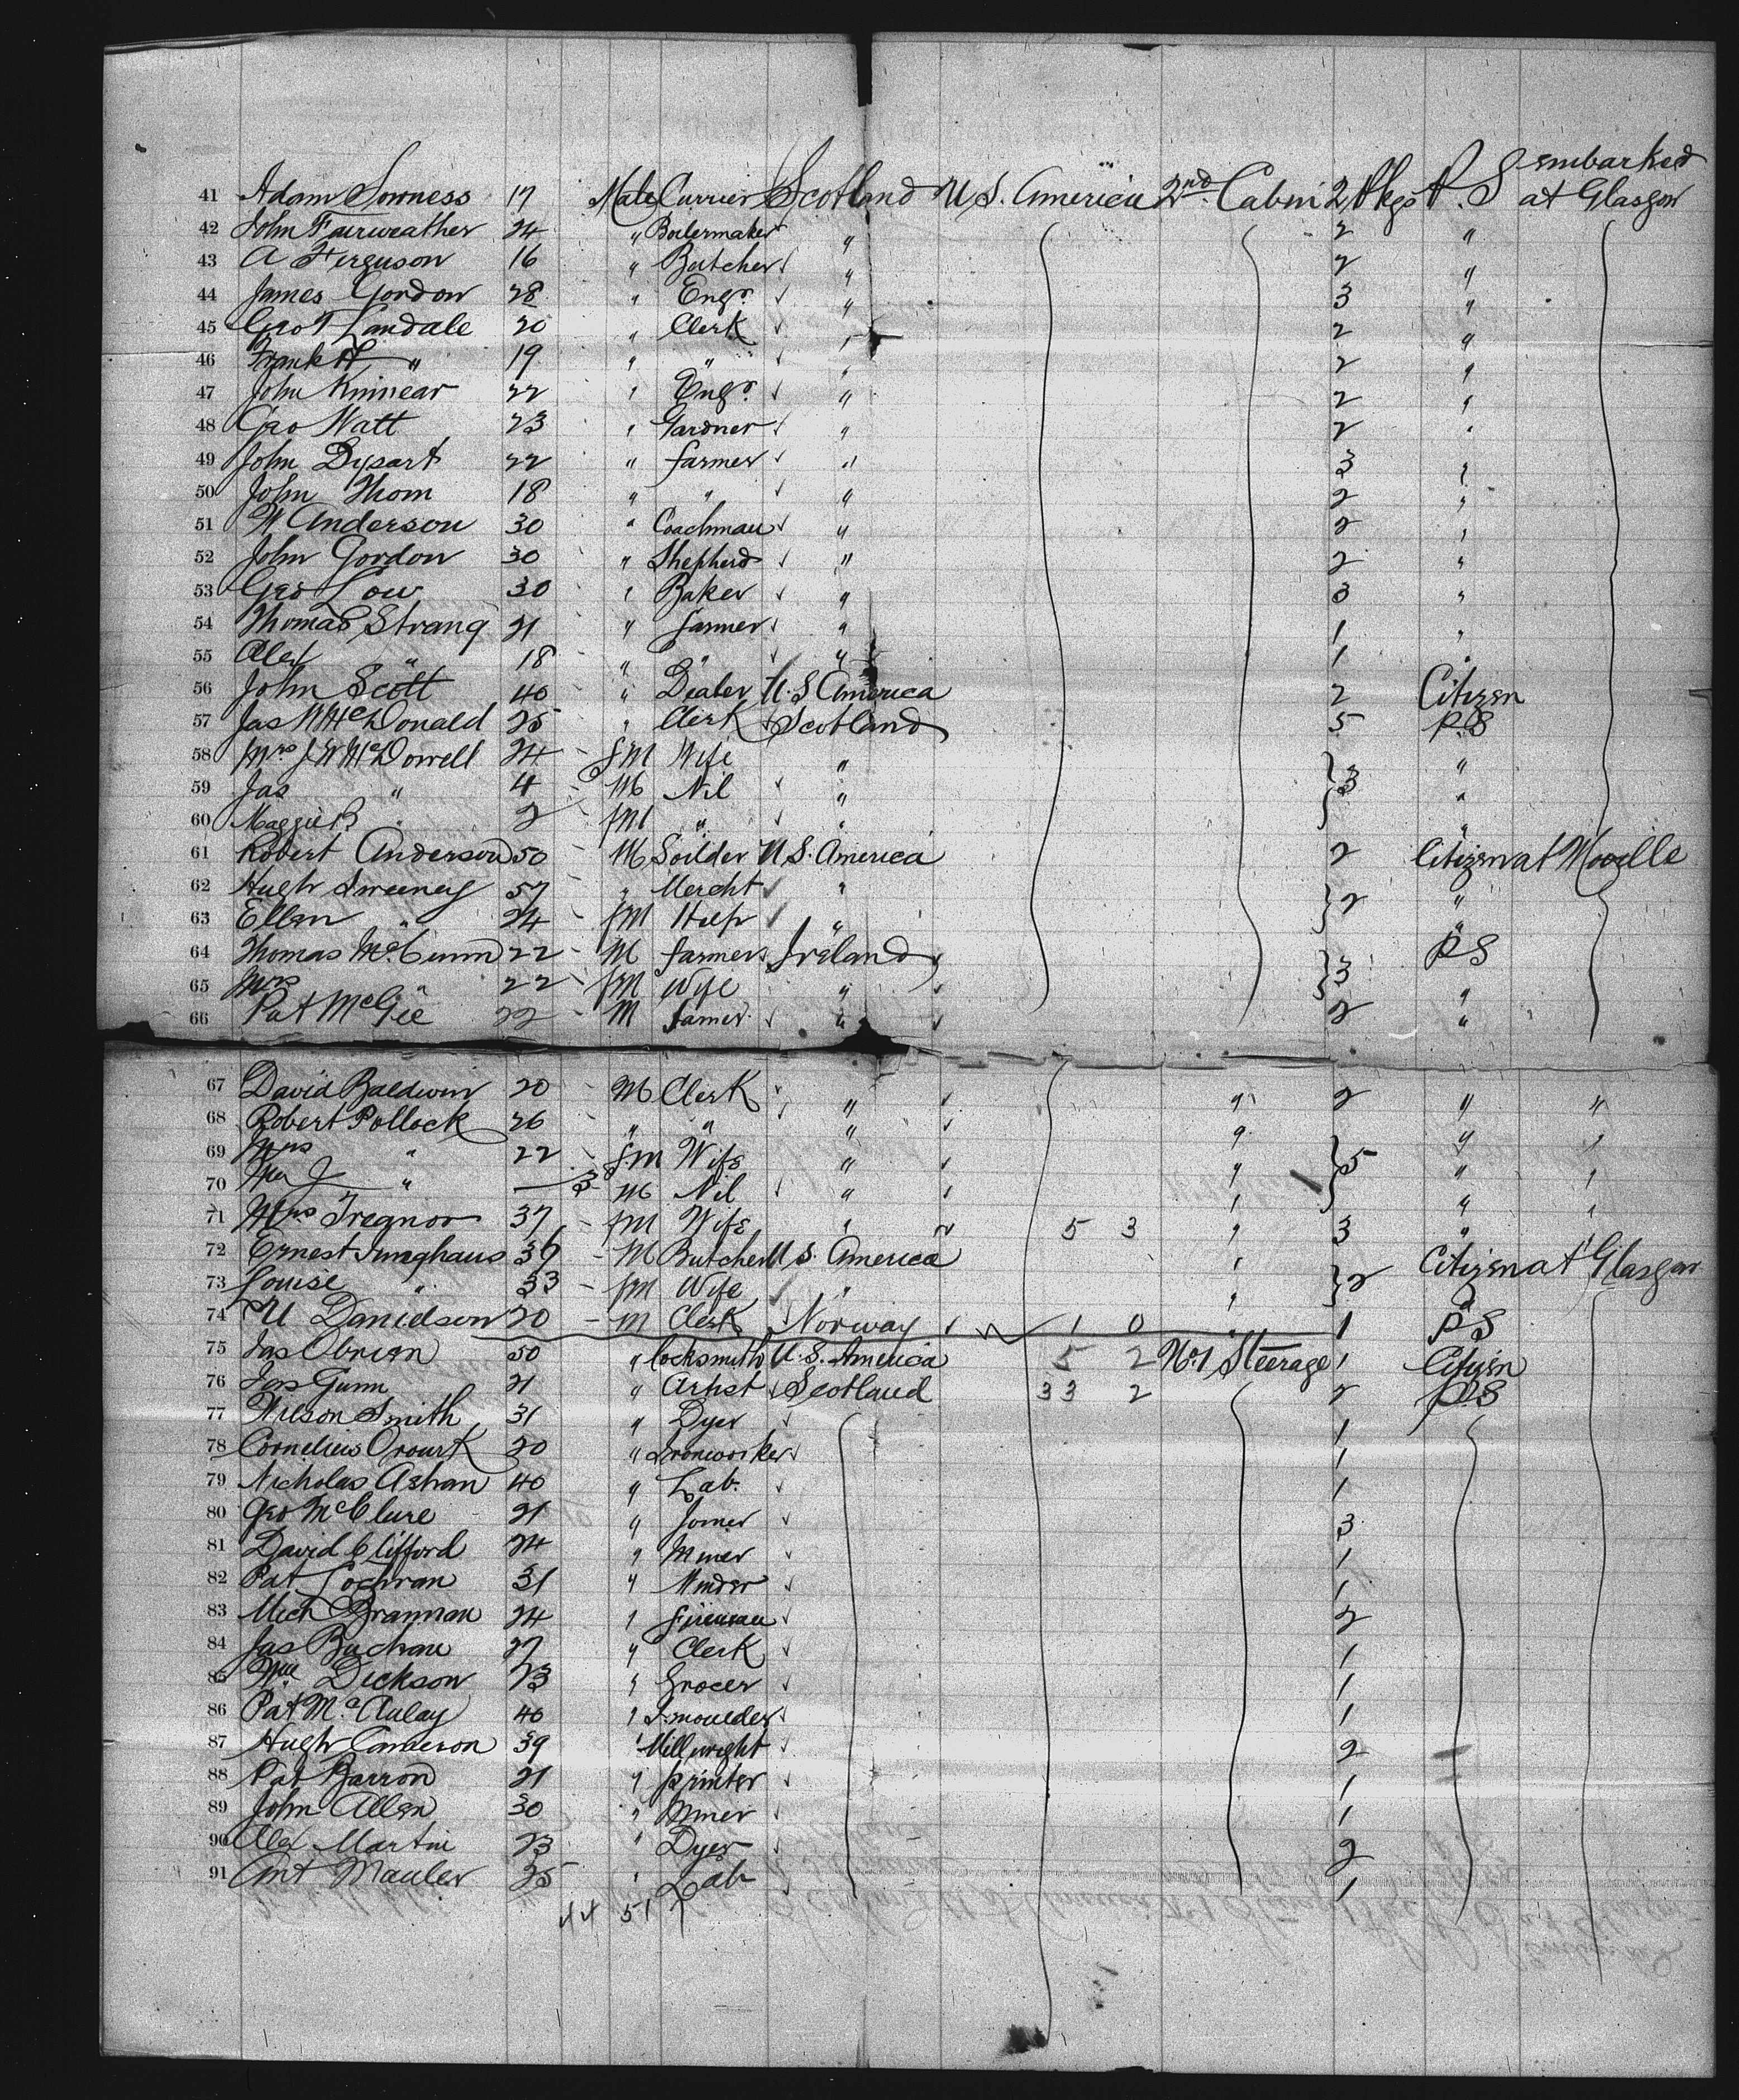 embarked
41 Adam Sowness 17 Male Currier Scotland U.S. America 2nd Cabin 2 Pkgs P.S at Glasgow
42 John Fairweather 24 " Boilermaker " 2 "
43 A Ferguson 16 " Butcher " 2 "
44 James Gordon 28 " Engr " 3 "
45 Geo T Landale 20 " Clerk " 2 "
46 Frank H " 19 " " " 2 "
47 John Kinnear 22 " Engr " 2 "
48 Geo Watt 23 " Gardner " 2 "
49 John Dysart 22 " farmer " 3 "
50 John Thom 18 " " " 2 "
51 W Anderson 30 " Coachman " 2 "
52 John Gordon 30 " Shepherd " 2 "
53 Geo Low 30 " Baker " 3 "
54 Thomas Strang 21 " farmer " 1 "
55 Alex " 18 " " " 1 "
56 John Scott 40 " Dealer U.S America 2 Citizen
57 Jas W McDonald 25 " Clerk Scotland 5 P.S
58 Mrs J W McDowell 24 fM Wife " "
59 Jas " 4 M Nil " 3 "
60 Maggie B " 2 fM " " "
61 Robert Anderson 50 M Soilder U.S. America 2 Citizen at Moville
62 Hugh Sweeney 57 " Mercht " 2 "
63 Ellen " 24 fM Help " "
64 Thomas McCunn 22 M farmer Ireland 3 P S
65 Mrs " 22 fM Wife " "
66 Pat McGee 22 M farmer " 2 "
67 David Baldwin 20 M Clerk " " 2 " "
68 Robert Pollock 26 " " " " " "
69 Mrs " 22 f.M Wife " " 5 " "
70 Wm J " 3 M Nil " " " "
71 Mrs Treanor 37 fM Wife " 5 3 " 3 " "
72 Ernest Junghaus 36 M Butcher U.S. America " Citizen at Glasgow
73 Louise " 33 fM Wife " " 2 "
74 U Danielson 20 M Clerk Norway 1 0 " 1 P S
75 Jas Obrien 50 " locksmith U.S. America 5 2 No 1 Steerage 1 Citizen
76 Jas Gunn 21 " Artist Scotland 33 2 2 P.S
77 Wilson Smith 31 " Dyer 1
78 Cornelius Orourk 20 " Ironworker 1
79 Nicholas Ashan 40 " Lab. 1
80 Geo McClure 21 " Joiner 3
81 David Clifford 24 " Miner 1
82 Pat Lochran 31 " Minder 1
83 Mich Brannan 24 " fireman 2
84 Jas Buchan 27 " Clerk 1
85 Wm Dickson 23 " Grocer 1
86 Pat McAulay 40 " I. moulder 1
87 Hugh Cameron 39 " Millwright 2
88 Pat Barron 21 " printer 1
89 John Allen 30 " Miner 1
90 Alex Martin 23 " Dyer 2
91 Ant Mauler 25 " Lab 1
44 51